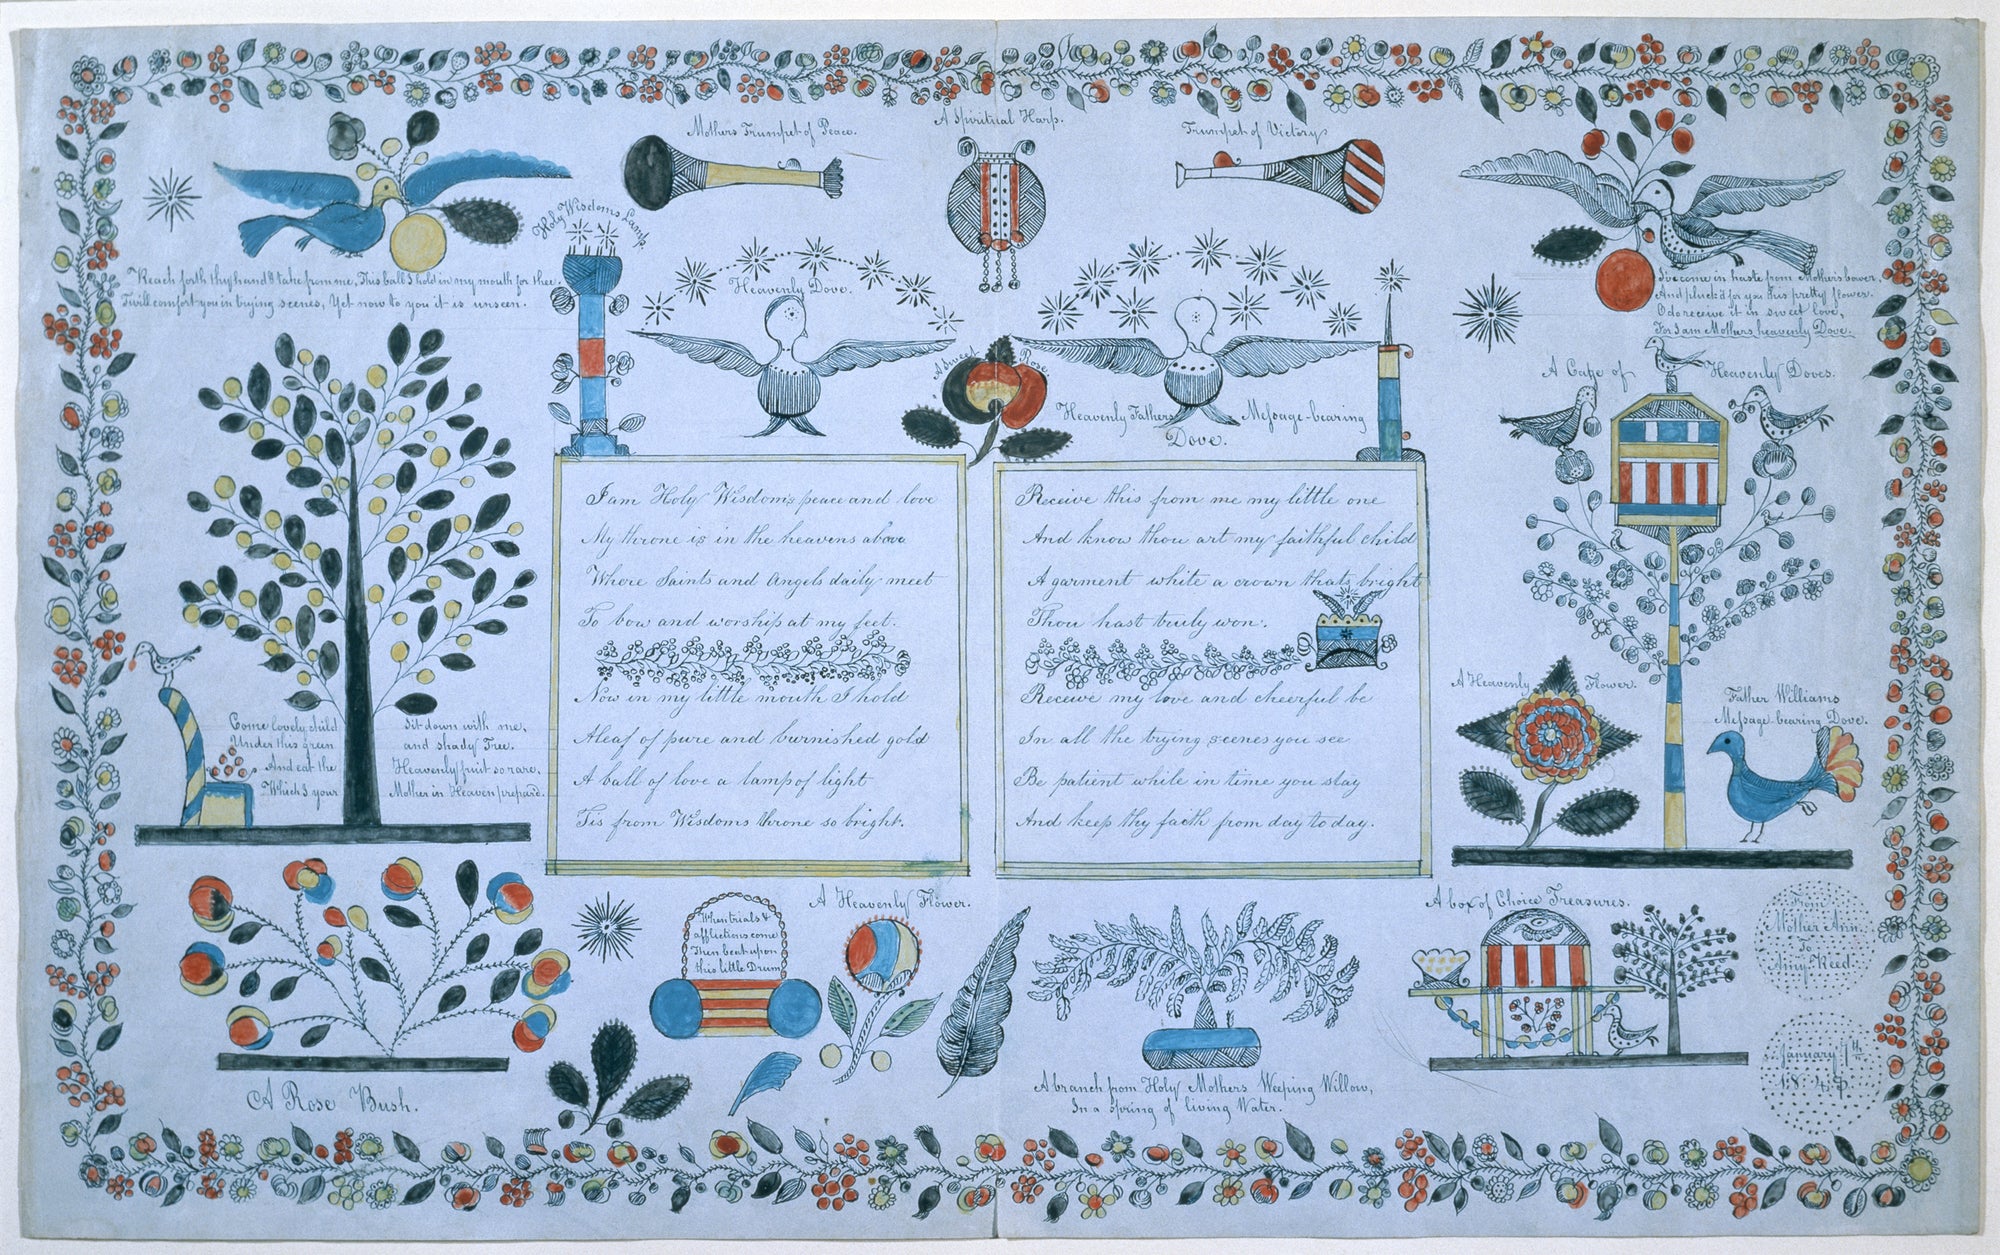 Mothers Trumpet of Peace.
A Spiritual Harp.
Trumpet of Victory
Holy Wisdoms Lamp.
Reach forth thy hand & take from me, This ball I hold in my mouth for thee.
I will comfort you in trying scenes, Yet now to you it is unseen.
Heavenly Dove.
A Sweet Rose.
Heavenly Fathers Message-bearing
Dove.
I've come in haste from Mother's bower,
And pluck'd for you this pretty flower.
O do receive it in sweet love,
For I am Mothers heavenly Dove.
A Cage of Heavenly Doves.
I am Holy Wisdoms peace and love
My throne is in the heavens above
Where Saints and Angels daily meet
To bow and worship at my feet.
Now in my little mouth I hold
A leaf of pure and burnished gold
A ball of love a lamp of light
Tis from Wisdoms throne so bright.
Receive this from me my little one
And know thou art my faithful child
A garment white a crown thats bright
Thou hast truly won.
Receive my love and cheerful be
In all the trying scenes you see
Be patient while in time you stay
And keep thy faith from day to day.
Come lovely child sit down with me,
Under this green and shady Tree.
And eat the Heavenly fruit so rare,
Which I your Mother in Heaven prepar'd.
A Heavenly Flower.
Father Williams
Message-bearing Dove.
A Rose Bush.
When trials &
afflictions come
Then beat upon
this little Drum
A Heavenly Flower.
A branch from Holy Mothers Weeping Willow,
In a spring of living Water.
A box of Choice Treasures.
From
Mother Ann
To
Amy Reed
January 7th